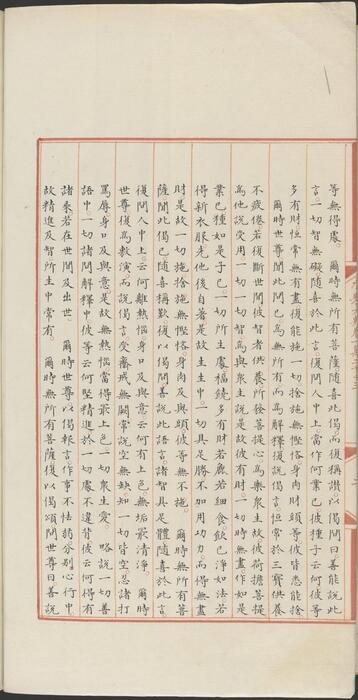 等無得處。爾時無所有菩薩隨喜此偈而復稱讚以偈問曰善能說此
言。一切智無礙隨喜於此言復問人中上當作何業已彼種子云何彼等
多有財恒常無有盡復能施一切捨施無慳悋身肉財頭等彼皆悉能捨
爾時世尊聞此問已為無所有而為解釋復說偈言恒常於三寶供養
不疲倦若復斷世間彼智者供養所發菩提心為樂衆生故彼荷擔菩提
為他說受用一切一切時智為與衆生說是故彼有財。一切時無盡作如是
業已種如是子已。一切所生處福饒多有財若麁若細食。飲已淨如法若
得新衣服先他後自著是故生生中。一切具足勝不加用功力而得無盡
財是故一切施捨施無慳悋身肉及與頭彼等無不施。爾時無所有菩
薩聞此偈已隨喜稱歎復以偈問世尊曰善說此語言諸智具足體隨喜於此言
復問人中上。云何離熱惱身口及與意云何有上色無垢最清淨。爾時
世尊復為教演而說偈言。受齋戒無闕常說空無缺知一切皆空忍諸打
罵辱身口及與意是故無熱惱當得最上色二切衆生愛。略說一切善
語中一切諸問解釋中彼等云何堅精進於一切處不違背彼云何得有
諸乘若在世間及出世。爾時世尊以偈報言作事不怯弱分別心行中
故精進及智所生中常有。爾時無所有菩薩復以偈頌問世尊曰善說